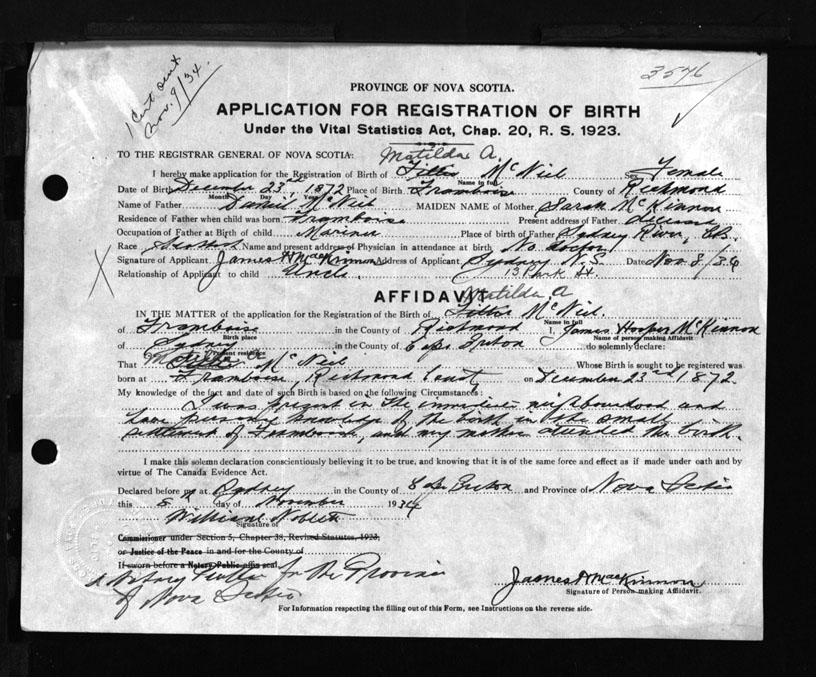 1 Cert sent
Nov. 9/34.
3576
PROVINCE OF NOVA SCOTIA.
APPLICATION FOR REGISTRATION OF BIRTH
Under the Vital Statistics Act, Chap. 20, R. S. 1923.
TO THE REGISTRAR GENERAL OF NOVA SCOTIA: Matilda A.
I hereby make application for the Registration of Birth of McNeil Sex Female
Name in full
Date of Birth December 23rd 1872 Place of Birth Framboise County of Richmond
Month Day Year
Name of Father Daniel McNeil MAIDEN NAME of Mother Sarah McKinnon
Residence of Father when child was born Framboise Present address of Father deceased
Occupation of Father at Birth of child Mariner Place of birth of Father Sydney River, C.B.
Race Scotch Name and present address of Physician in attendance at birth No doctor
Signature of Applicant James H MacKinnon Address of Applicant Sydney N.S. Date Nov 8/34
Relationship of Applicant to child Uncle 13 Park St
AFFIDAVIT
Matilda A
IN THE MATTER of the application for the Registration of the Birth of McNeil.
Name in full
of Framboise in the County of Richmond I, James Hooper McKinnon
Birth place Name of person making Affidavit
of Sydney in the County of Cape Breton do solemnly declare:
Present residence
That McNeil Whose Birth is sought to be registered was
born at Framboise, Richmond County on December 23rd 1872.
My knowledge of the fact and date of such Birth is based on the following Circumstances:
I was present in the immediate neighbourhood and
have personal knowledge of the birth in the small
settlement of Framboise, and my mother attended the birth.
I make this solemn declaration conscientiously believing it to be true, and knowing that it is of the same force and effect as if made under oath and by
virtue of The Canada Evidence Act.
Declared before me at Sydney in the County of Cape Breton and Province of Nova Scotia
this 8th day of November 1934
William
Signature of
Commissioner under Section 5, Chapter 38, Revised Statutes, 1923,
or Justice of the Peace in and for the County of
If sworn before a Notary Public affix seal.
a Notary Public for the Province
of Nova Scotia
James H MacKinnon
Signature of Person making Affidavit.
For Information respecting the filling out of this Form, see Instructions on the reverse side.